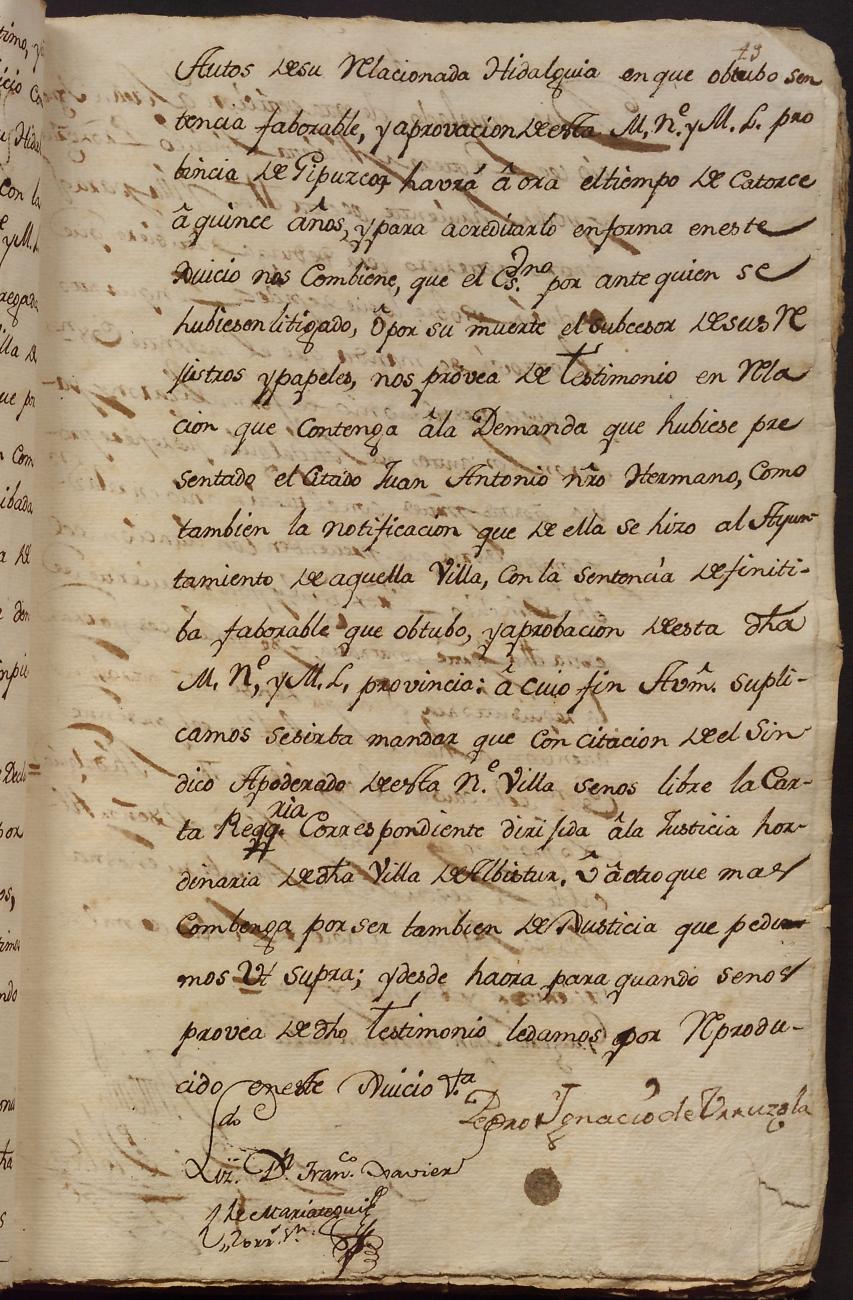 43
Autos desu Relacionada Hidalguia en que obtubo sen
tencia faborable, y aprovacion de esta M. N.º y M. L. pro
bincia de Gipuzcoa havrá â ora el tiempo de Catorce
â quince años, y para acreditarlo en forma en este
Juicio nos Combiene, que el Es.no por ante quien se
hubiesen litigado, ô por su muerte el subcesor de sus Re
jistros y papeles, nos provea de testimonio en Rela
cion que contenga âla Demanda que hubiese pre
sentado el Citado Juan Antonio nro Hermano, Como
tambien la notificacion que de ella se hizo al Ayun-
tamiento de aquella Villa, Con la sentencia definiti-
ba faborable que obtubo, y aprobacion de esta dha
M. N.º, y M. L. provincia: â cuio fin Avm. supli-
camos se sirba mandar que con citacion de el Sin
dico Apoderado de esta N.e Villa se nos libre la Car-
ta Reqq.ria Correspondiente dirijida âla Justicia hor-
dinaria de dha Villa de Albistur. Ô â otro que mas
Combenga por ser tambien de Justicia que pedi-
mos Ut supra; y desde haora para quando se nos
provea de dho testimonio le damos por Reprodu-
cido en este Juicio Vt.a
Pedro Ignacio de Urruzola
do
Liz.do Dn. Fran.co Xavier
de Mariategui